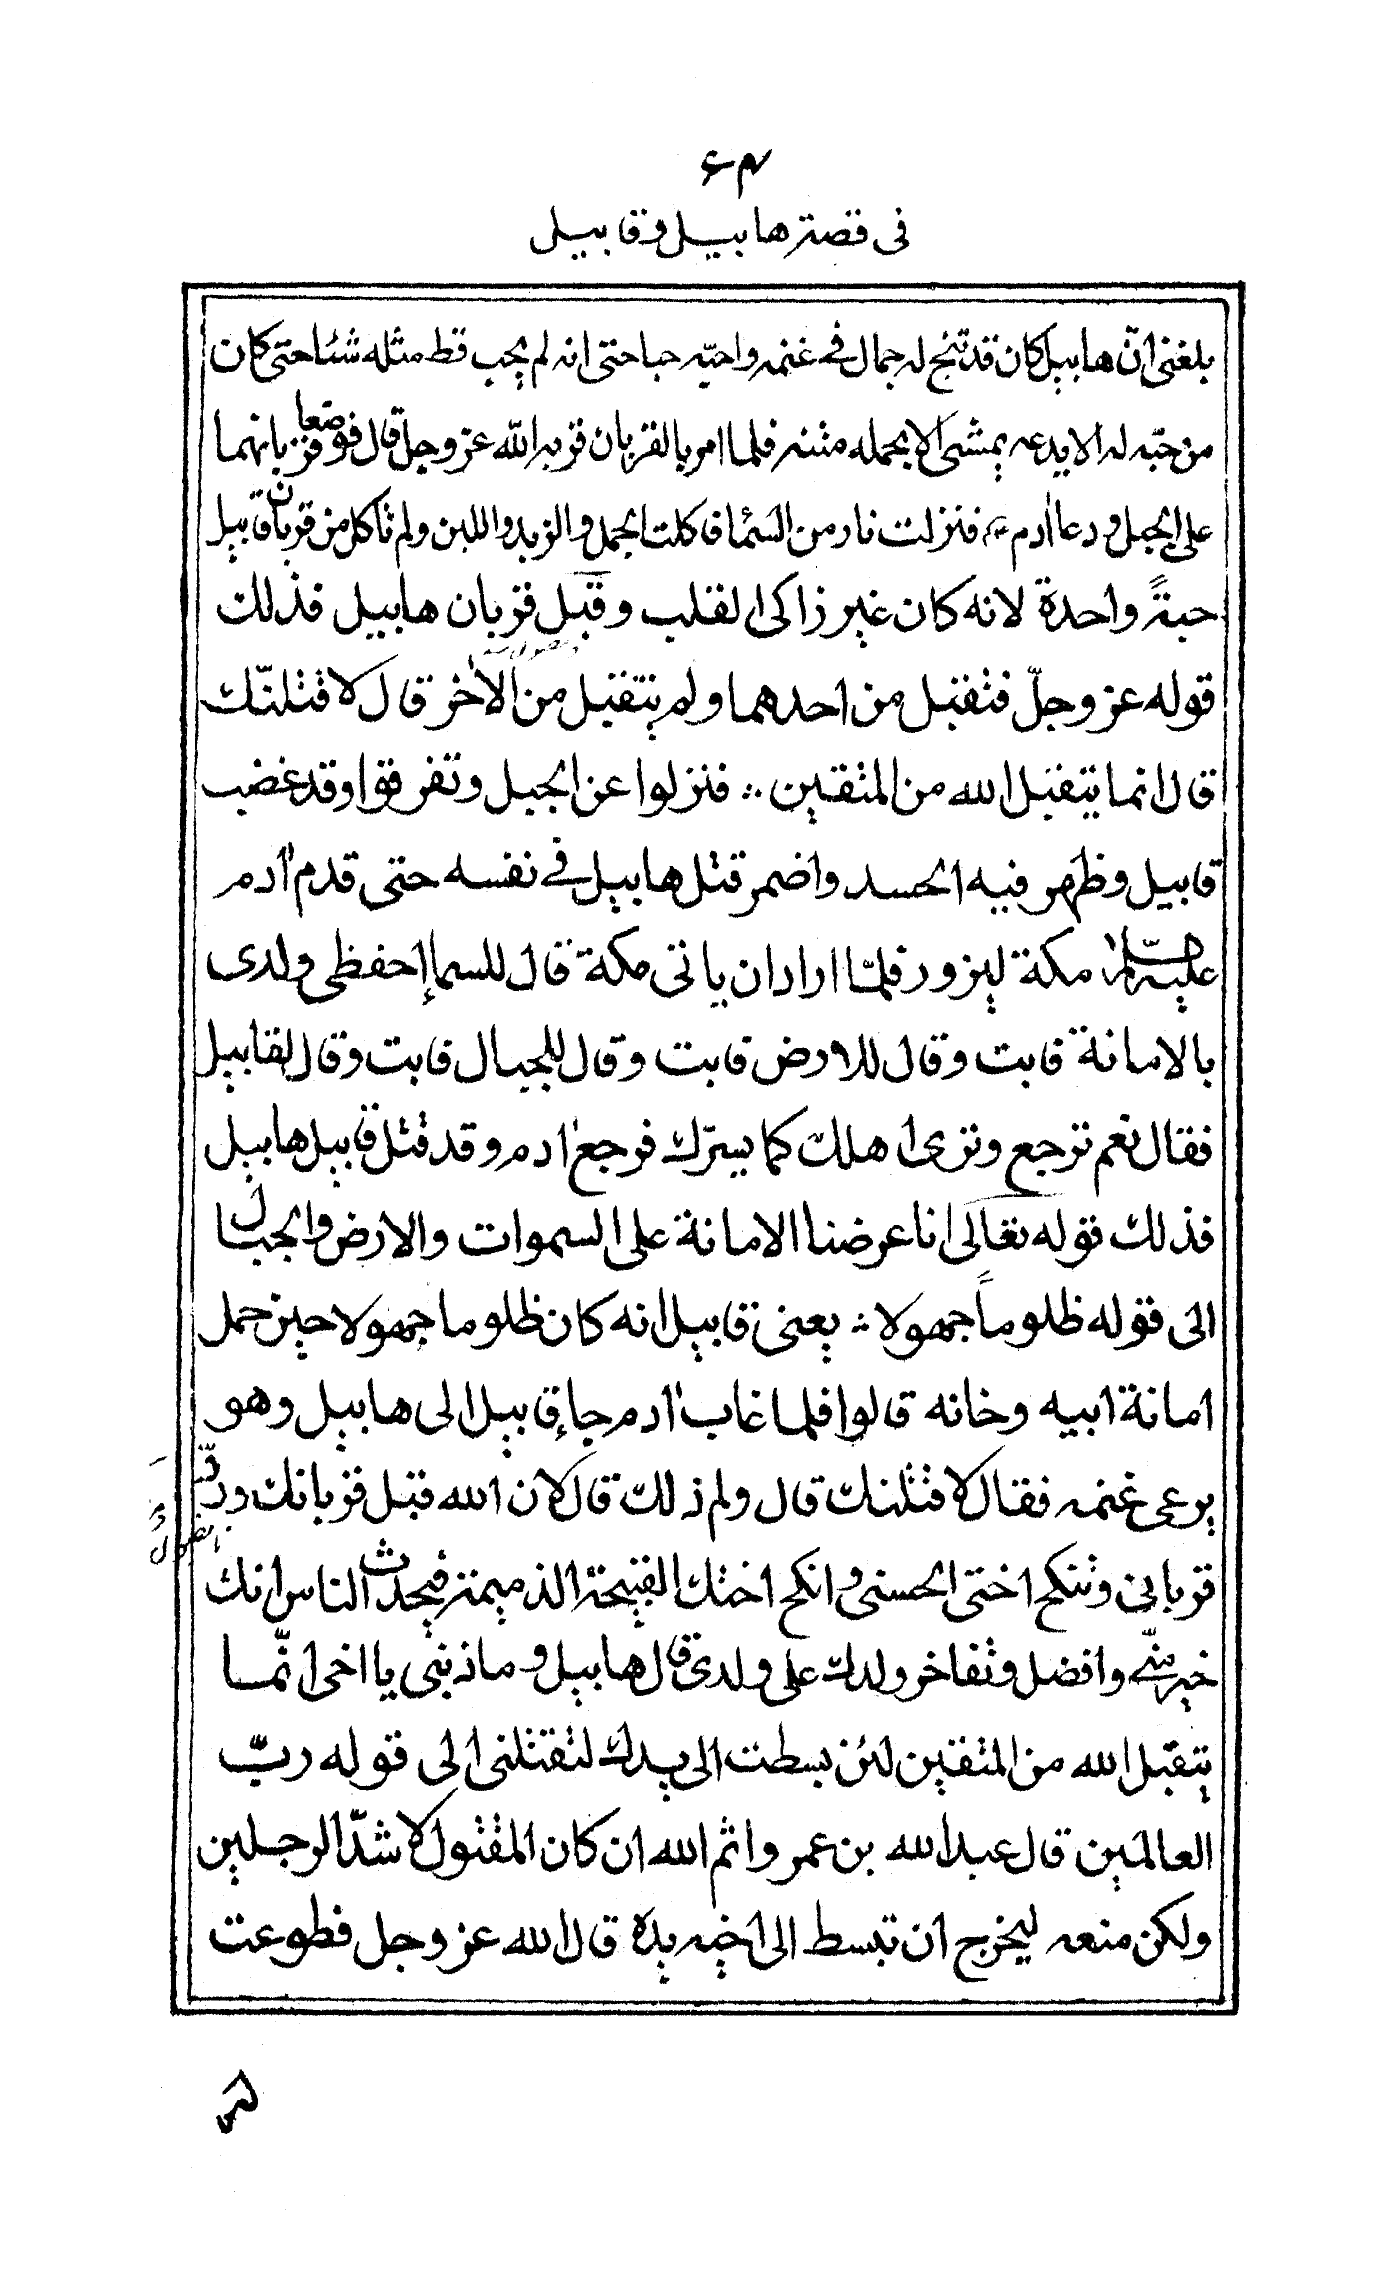 ۶۴
فى قصة هابيل وقابيل
بلغنى انّ هابيل كان قد نتج له جمال فى غنمه واحبّه حبا حتى انه لم يحب قط مثله شئا حتى كان
من حبّه له الا يدعه يمشى الا يحمله متنه فلما امر بالقربان قربه الله عز وجلّ قال فوضعا قربانهما
على الجبل ودعا ادم فنزلت نار من السّمٔا فاكلت الجمل والزبد واللبن ولم تاكل من قربان قابيل
حبةً واحدة لانه كان غير زاكى القلب وقبل قربان هابيل فذلك
قوله عز وجلّ فتقبل من احدهما ولم يتقبل من الاخر قال لاقتلنّك
قال انما يتقبل الله من المتقين ∴ فنزلوا عن الجبل وتفرقوا وقد غضب
قابيل وظهر فيه الحسد واضمر قتل هابيل فى نفسه حتى قدم ادم
عليه السّلام مكة ليزور فلمّا اراد ان ياتى مكة قال للسماإ احفظى ولدى
بالامانة فابت وقال للارض فابت وقال للجبال فابت وقال لقابيل
فقال نعم ترجع وترى اهلك كما يسرّك فرجع ادم وقد قتل قابيل هابيل
فذلك قوله تعالى انا عرضنا الامانة على السموات والارض والجبال
الى قوله ظلوماً جهولا ∴ يعنى قابيل انه كان ظلوما جهولا حين حمل
امانة ابيه وخانه قالوا فلما غاب ادم جاإ قابيل الى هابيل وهو
يرعى غنمه فقال لاقتلنك قال ولم ذلك قال لان الله قبل قربانك وردّ
قربانى وتنكح اختى الحسنى وانكح اختك القبيحة الذميمة فيحدث الناس انك
خير منّى وافضل وتفاخر ولدك على ولدى قال هابيل وما ذنبى يا اخى انّما
يتقبّل الله من المتقين لئن بسطت الى يدك لتقتلنى الى قوله ربّ
العالمين قال عبد الله بن عمر واثم الله ان كان المقتول لاشدّ الرجلين
ولكن منعه ليخرج ان تبسط الى اخيه يده قال الله عز وجل فطوعت